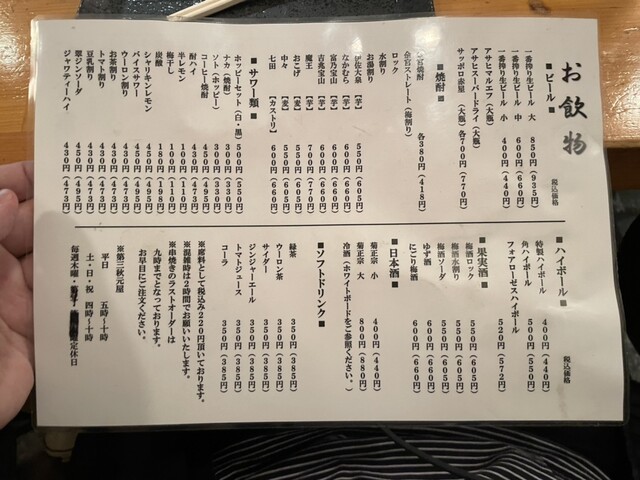 お飲物
税込価格
■ビール■
一番搾り生ビール 大 850円(935円)
一番搾り生ビール 中 600円(660円)
一番搾り生ビール 小 400円(440円)
アサヒマルエフ(大瓶)
アサヒスーパードライ(大瓶)
サッポロ赤星(大瓶)各700円(770円)
■焼酎■
各380円(418円)
金宮ストレート(梅割り)
ロック
水割り
お湯割り
伊佐大泉【芋】 550円(605円)
なかむら【芋】 600円(660円)
富乃宝山【芋】 600円(660円)
吉兆宝山【芋】 600円(660円)
魔王 700円(770円)
おこげ【麦】 550円(605円)
中々【麦】 550円(605円)
七田【カストリ】 600円(660円)
■サワー類■
ホッピーセット(白・黒) 500円(550円)
ナカ(焼酎) 300円(330円)
ソト(ホッピー) 300円(330円)
コーヒー焼酎 450円(495円)
酎ハイ 430円(473円)
半レモン 100円(110円)
梅干し 100円(110円)
炭酸 180円(198円)
シャリキンレモン 450円(495円)
バイスサワー 450円(495円)
ウーロン割り 430円(473円)
お茶割り 430円(473円)
トマト割り 430円(473円)
豆乳割り 430円(473円)
翠ジンソーダ 450円(495円)
ジャワティーハイ 430円(473円)
■ハイボール■
税込価格
特製ハイボール 400円(440円)
角ハイボール 500円(550円)
フォアローゼスハイボール 520円(572円)
■果実酒■
梅酒ロック 550円(605円)
梅酒水割り 550円(605円)
梅酒ソーダ 550円(605円)
ゆず酒 600円(660円)
にごり梅酒 600円(660円)
■日本酒■
菊正宗 小 400円(440円)
菊正宗 大 800円(880円)
冷酒(ホワイトボードをご参照ください。)
■ソフトドリンク■
緑茶 350円(385円)
ウーロン茶 350円(385円)
サイダー 350円(385円)
ジンジャーエール 350円(385円)
トマトジュース 350円(385円)
コーラ 350円(385円)
※席料として税込み220円頂いております。
※混雑時は2時間でお願いいたします。
※串焼きのラストオーダーは
九時までとなっております。
お早目にご注文ください。
※第三秋元屋
平日 五時〜十時
土・日・祝 四時〜十時
毎週木曜・定休日